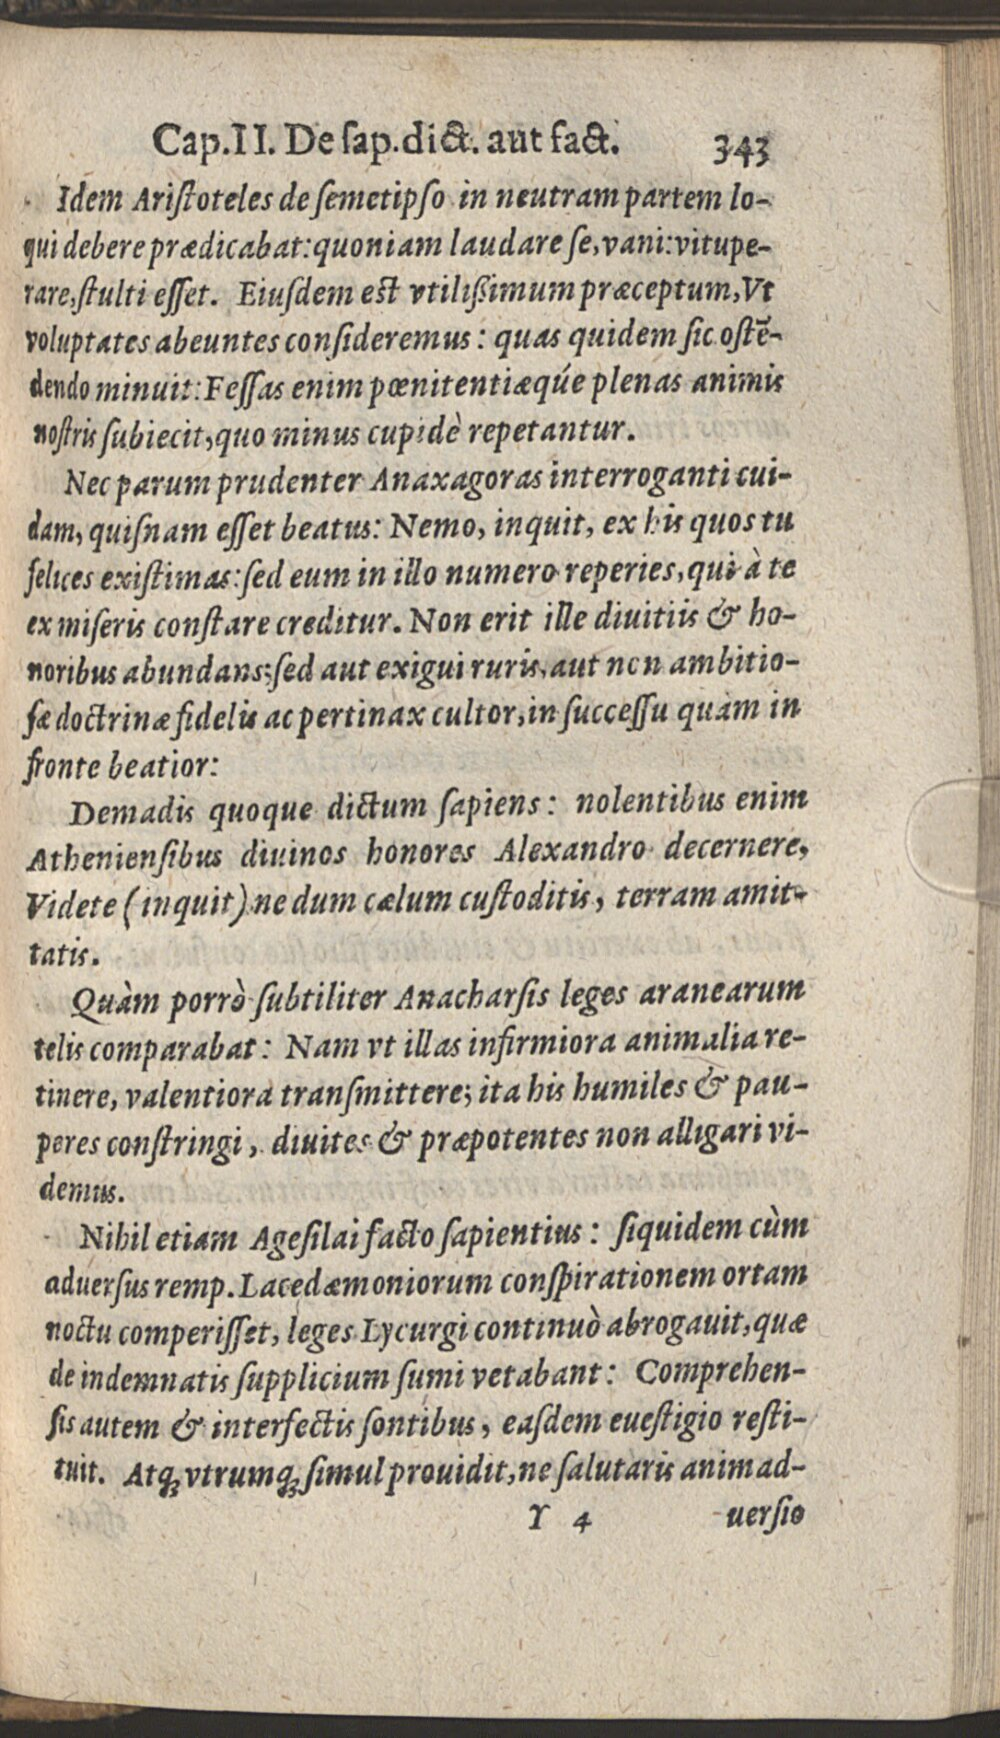 Cap.II. De ſap. dict. aut fact. 343
Idem Ariſtoteles de ſemetipſo in neutram partem lo-
qui debere prædicabat: quoniam laudare ſe, vani: vitupe-
rare, ſtulti eſſet. Eiuſdem eſt vtilißimum præceptum, Vt
voluptates abeuntes conſideremus: quas quidem ſic oſtē-
dendo minuit: Feſſas enim pœnitentiæq́ue plenas animis
noſtris ſubiecit, quo minus cupidè repetantur.
Nec parum prudenter Anaxagoras interroganti cui-
dam, quiſnam eſſet beatus: Nemo, inquit, ex his quos tu
felices exiſtimas: ſed eum in illo numero reperies, qui à te
ex miſeris conſtare creditur. Non erit ille diuitiis & ho-
noribus abundans; ſed aut exigui ruris, aut non ambitio-
ſæ doctrinæ fidelis ac pertinax cultor, in ſucceſſu quàm in
fronte beatior:
Demadis quoque dictum ſapiens: nolentibus enim
Athenienſibus diuinos honores Alexandro decernere,
Videte (inquit) ne dum cælum cuſtoditis, terram amit-
tatis.
Quàm porrò ſubtiliter Anacharſis leges aranearum
telis comparabat: Nam vt illas infirmiora animalia re-
tinere, valentiora tranſmittere; ita his humiles & pau-
peres conſtringi, diuites & præpotentes non alligari vi-
demus.
Nihil etiam Ageſilai facto ſapientius: ſiquidem cùm
aduerſus remp. Lacedæmoniorum conſpirationem ortam
noctu comperiſſet, leges Lycurgi continuò abrogauit, quæ
de indemnatis ſupplicium ſumi vetabant: Comprehen-
ſis autem & interfectis ſontibus, eaſdem eueſtigio reſti-
tuit. Atq; vtrumq; ſimul prouidit, ne ſalutaris animad-
Y 4 uerſio